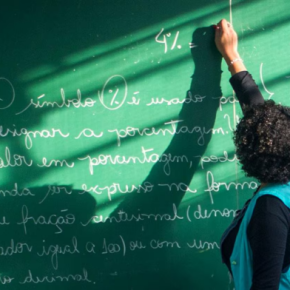 4% =
O símbolo (%) é usado pa
designar a porcentagem
valor em porcentagem, pod
ser expresso na forma
e fração centesimal (denom
ador igual a 100) ou com um
decimal.